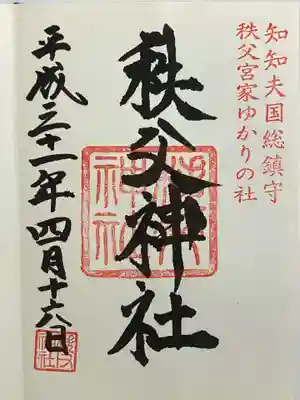 知知夫国総鎮守
秩父宮家ゆかりの社
秩父神社
平成三十一年四月十六日